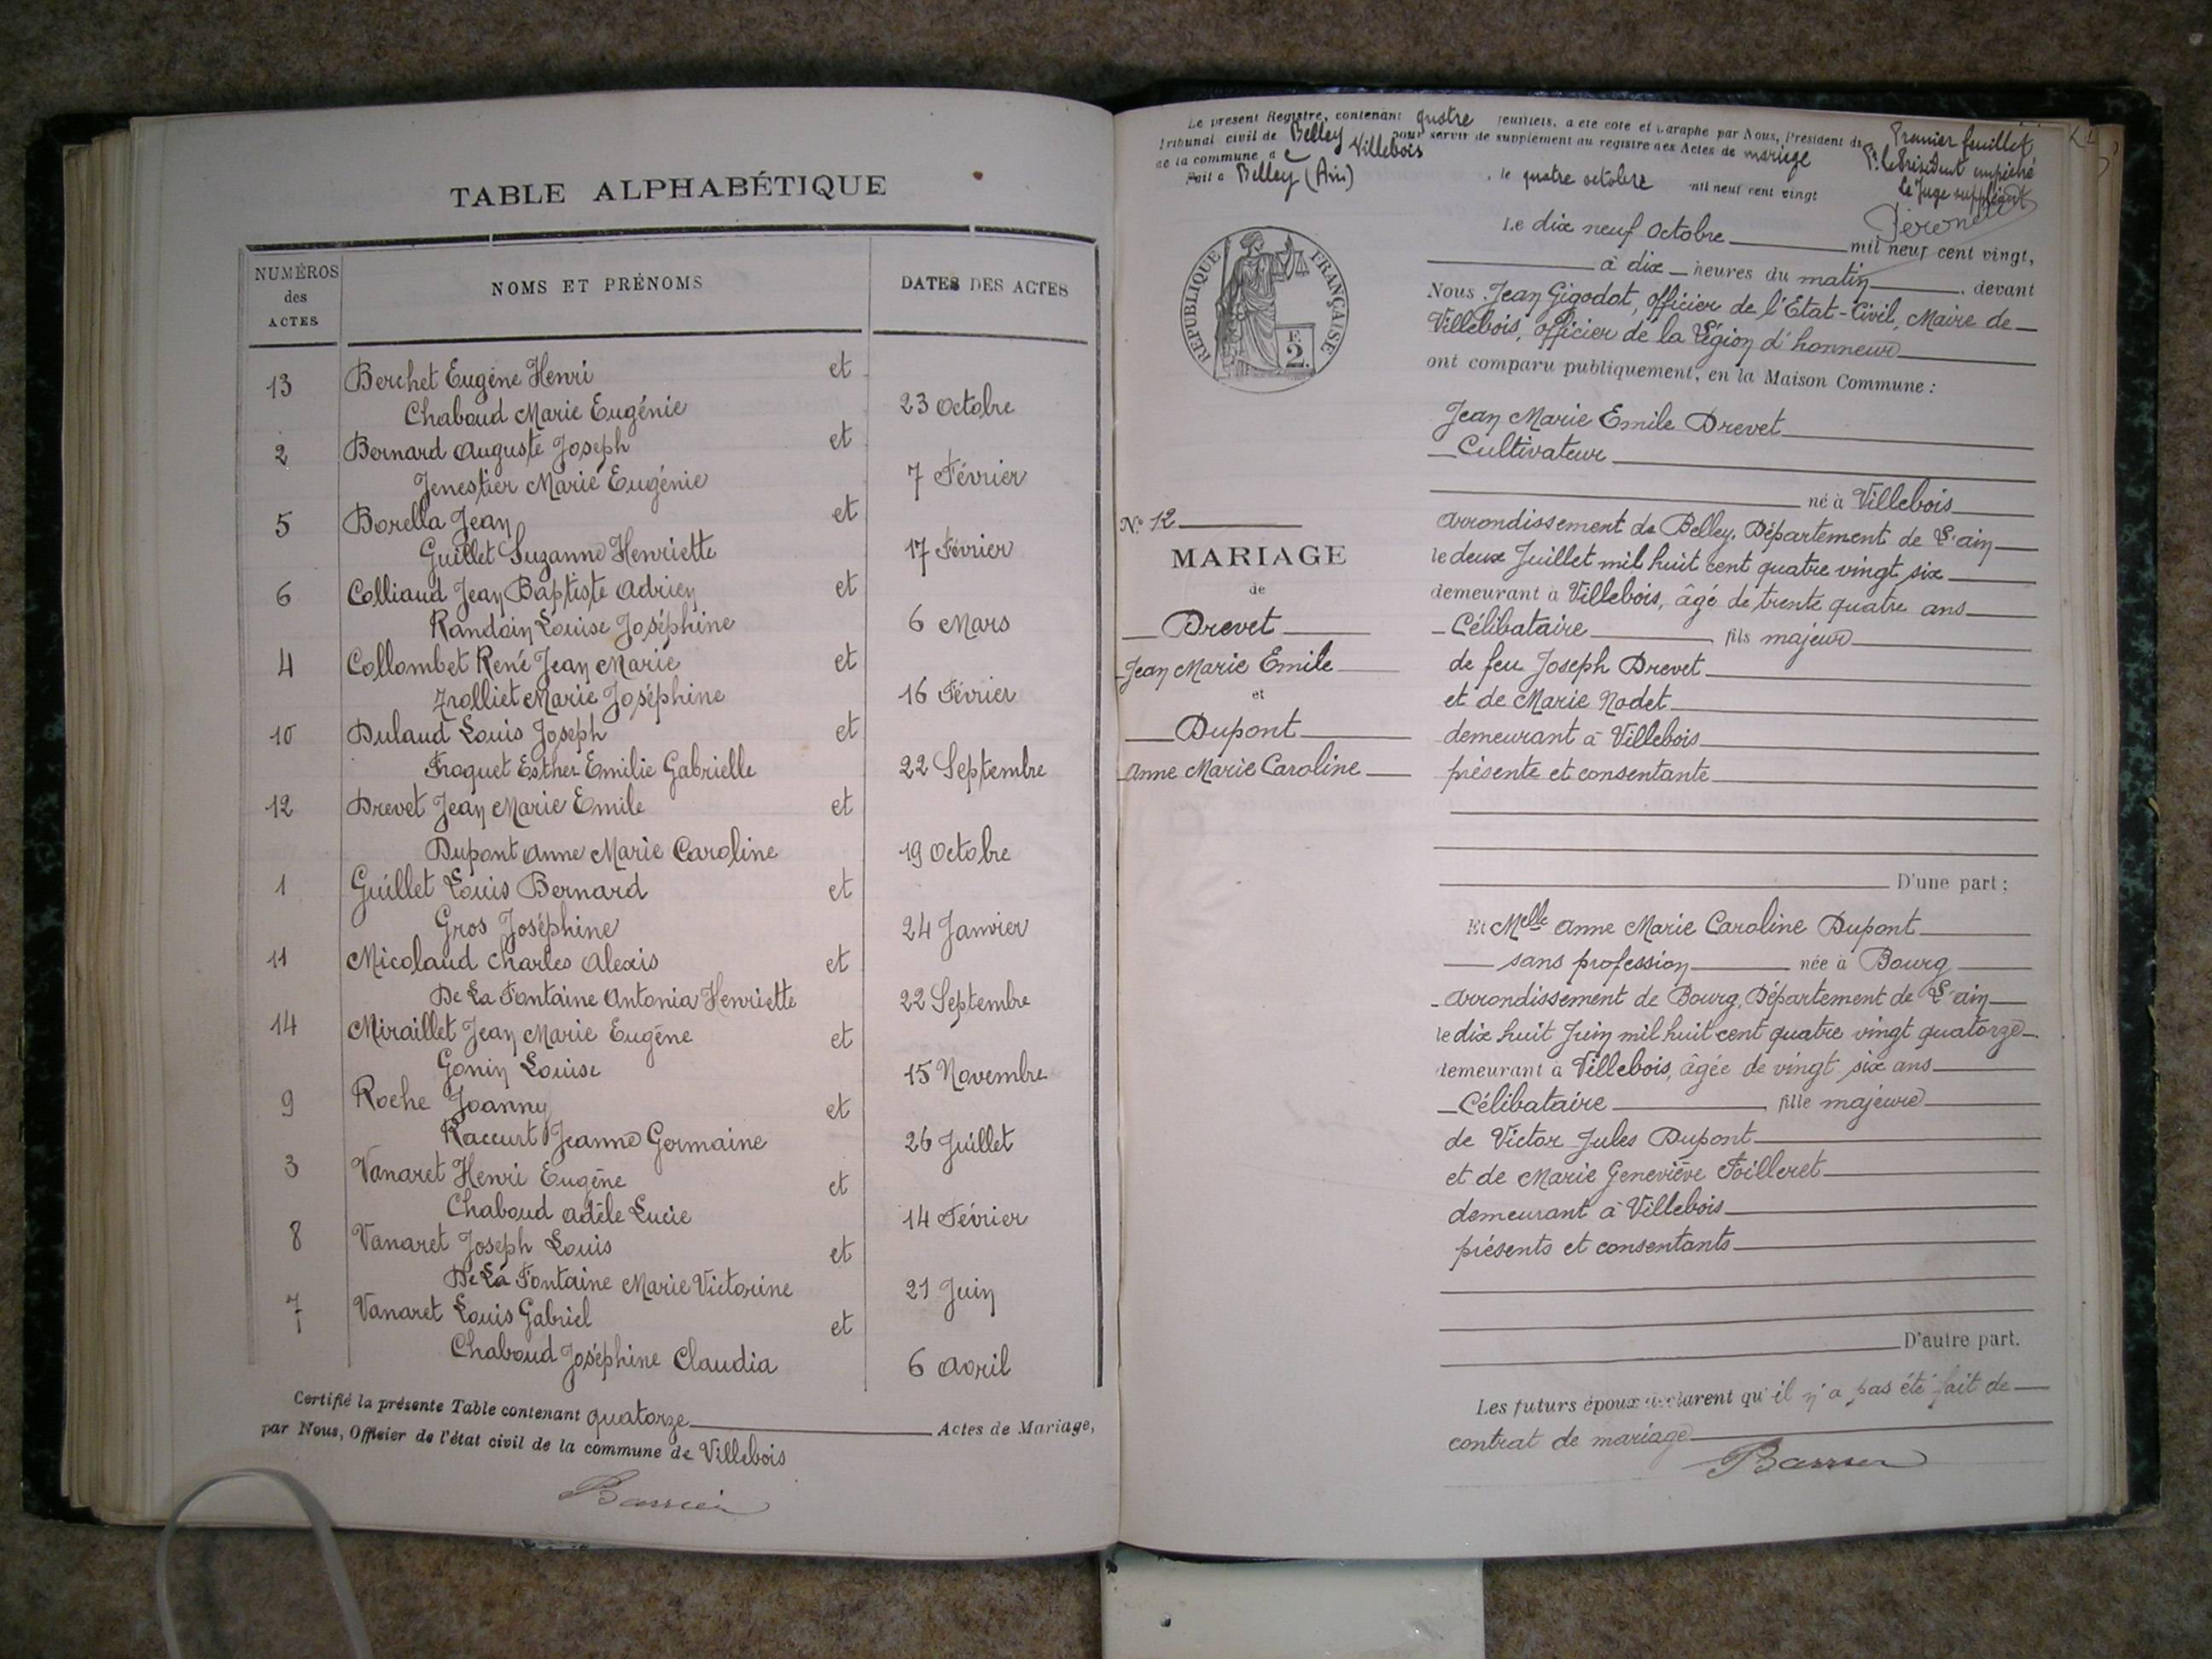 TABLE ALPHABÉTIQUE
NUMÉROS des ACTES
NOMS ET PRÉNOMS
DATES DES ACTES
13 Berchet Eugène Henri et
Chaboud Marie Eugénie 23 Octobre
2 Bernard Auguste Joseph et
Jenestier Marie Eugénie 7 Février
5 Borella Jean et
Guillet Suzanne Henriette 17 Février
6 Colliaud Jean Baptiste Adrien et
Randoin Louise Joséphine 6 Mars
4 Collombet René Jean Marie et
Trolliet Marie Joséphine 16 Février
10 Dulaud Louis Joseph et
Froquet Esther Emilie Gabrielle 22 Septembre
12 Drevet Jean Marie Emile et
Dupont Anne Marie Caroline 19 Octobre
1 Guillet Louis Bernard et
Gros Joséphine 24 Janvier
11 Micolaud Charles Alexis et
De La Fontaine Antonia Henriette 22 Septembre
14 Miraillet Jean Marie Eugène et
Gonin Louise 15 Novembre
9 Roche Joanny et
Raccurt Jeanne Germaine 26 Juillet
3 Vanaret Henri Eugène et
Chaboud Adèle Lucie 14 Février
8 Vanaret Joseph Louis et
De La Fontaine Marie Victorine 21 Juin
7 Vanaret Louis Gabriel et
Chaboud Joséphine Claudia 6 Avril
Certifié la présente Table contenant quatorze Actes de Mariage,
par Nous, Officier de l'état civil de la commune de Villebois
Le présent Registre, contenant quatre feuillets, a été coté et paraphé par Nous, Président du
Tribunal civil de Belley pour servir de supplément au registre des Actes de mariage
de la commune de Villebois
Fait à Belley (Ain), le quatre octobre mil neuf cent vingt
Premier feuillet
Pr le Président empêché
le Juge suppléant
RÉPUBLIQUE FRANÇAISE
E
2.
Le dix neuf Octobre mil neuf cent vingt,
à dix heures du matin, devant
Nous Jean Gigodot, officier de l'Etat-Civil, Maire de
Villebois, officier de la Légion d'honneur
ont comparu publiquement, en la Maison Commune :
Jean Marie Emile Drevet
Cultivateur
né à Villebois
N° 12
MARIAGE
de
Drevet
Jean Marie Emile
et
Dupont
Anne Marie Caroline
Arrondissement de Belley, Département de L'ain
le deux Juillet mil huit cent quatre vingt six
demeurant à Villebois, âgé de trente quatre ans
Célibataire fils majeur
de feu Joseph Drevet
et de Marie Nodet
demeurant à Villebois
présente et consentante
D'une part ;
Et Melle Anne Marie Caroline Dupont
sans profession née à Bourg
Arrondissement de Bourg, Département de L'ain
le dix huit Juin mil huit cent quatre vingt quatorze
demeurant à Villebois, âgée de vingt six ans
Célibataire fille majeure
de Victor Jules Dupont
et de Marie Geneviève Foilleret
demeurant à Villebois
présents et consentants
D'autre part.
Les futurs époux déclarent qu'il n'a pas été fait de
contrat de mariage